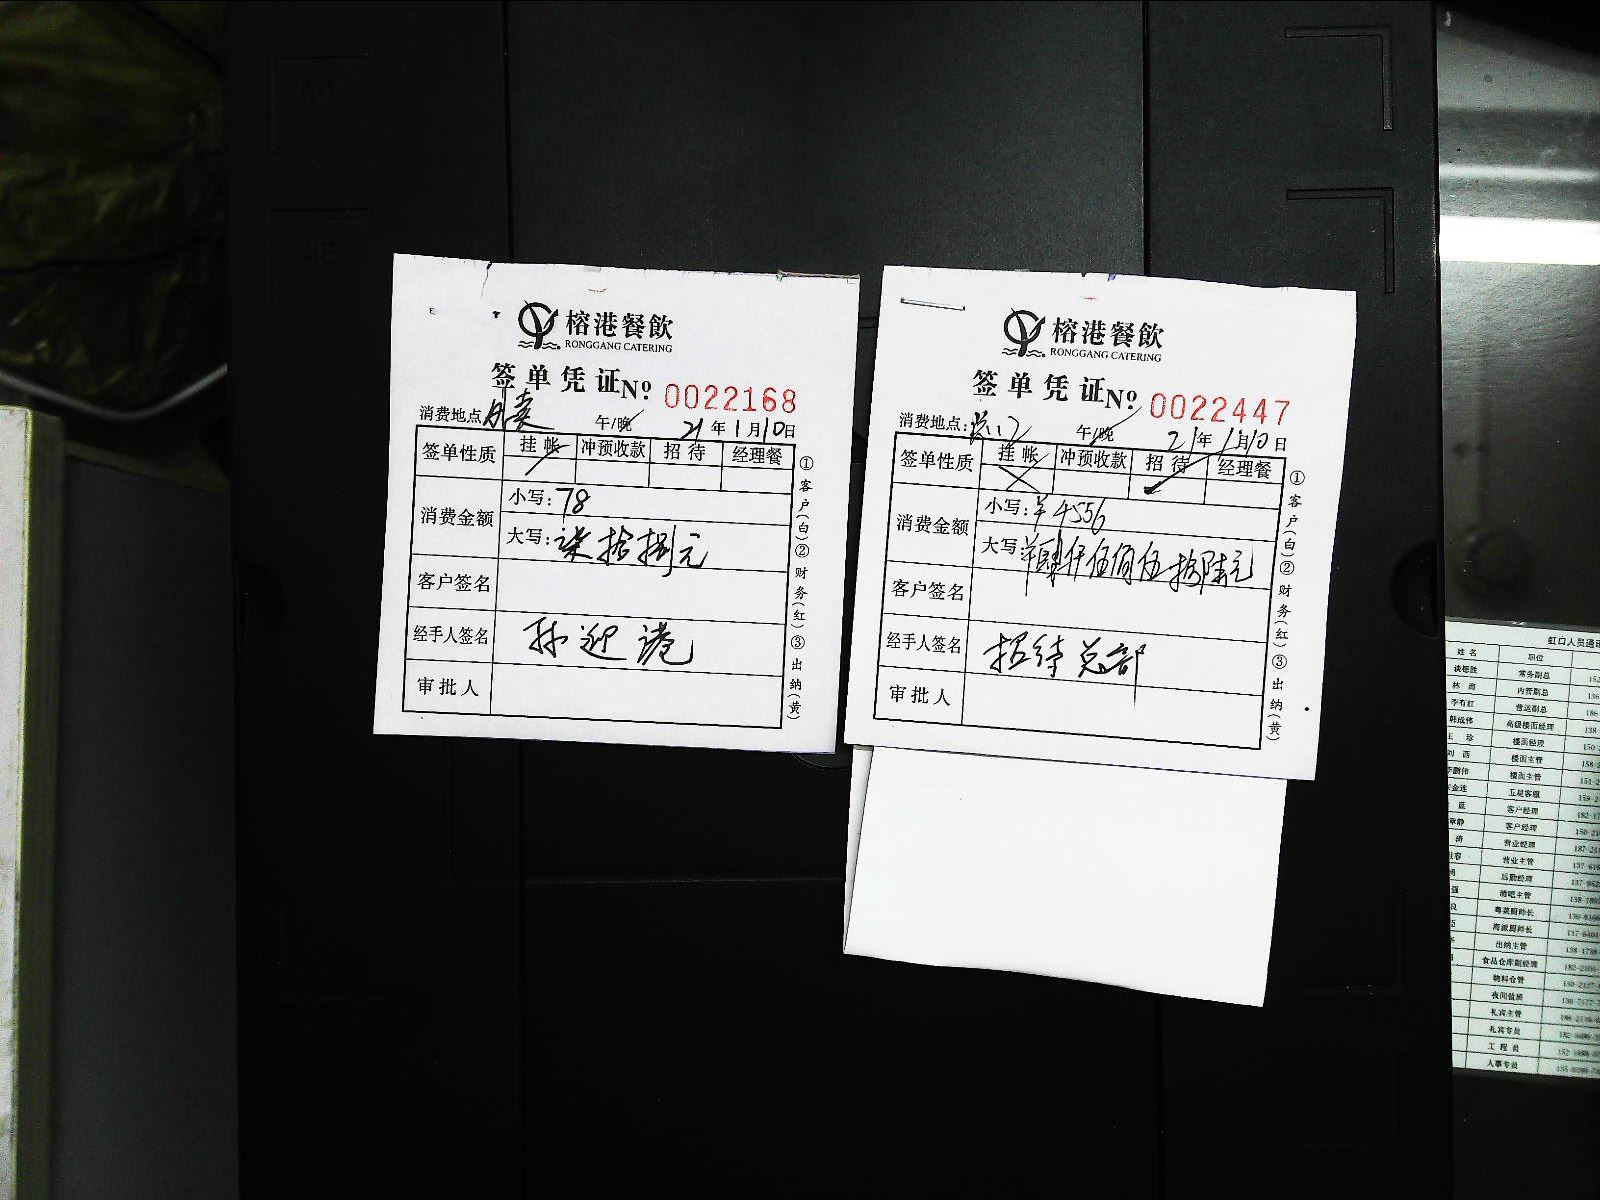 A4
A5
榕港餐飲
RONGGANG CATERING
签单凭证№ 0022168
消费地点 外卖 午/晚 21年1月10日
签单性质 挂帐 冲预收款 招待 经理餐
消费金额 小写:78
大写:柒拾捌元
客户签名
经手人签名 孙迎港
审批人
①客户(白)②财务(红)③出纳(黄)
榕港餐飲
RONGGANG CATERING
签单凭证№ 0022447
消费地点: 午/晚 21年1月10日
签单性质 挂帐 冲预收款 招待 经理餐
消费金额 小写:¥4556
大写:肆仟伍佰伍拾陆元
客户签名
经手人签名 招待总部
审批人
①客户(白)②财务(红)③出纳(黄)
虹口人员通讯
姓名 职位
常务副总
林海 内管副总
李有红 营运副总
韩成伟 高级楼面经理
王珍 楼面经理
刘西 楼面主管
李鹏伟 楼面主管
金连 五星客服
蓝 客户经理
静 客户经理
涛 营业经理
营业主管
后勤经理
强 酒吧主管
良 粤菜厨师长
海派厨师长
出纳主管
食品仓库副经理
物料仓管
夜间值班
礼宾主管
礼宾专员
工程员
人事专员